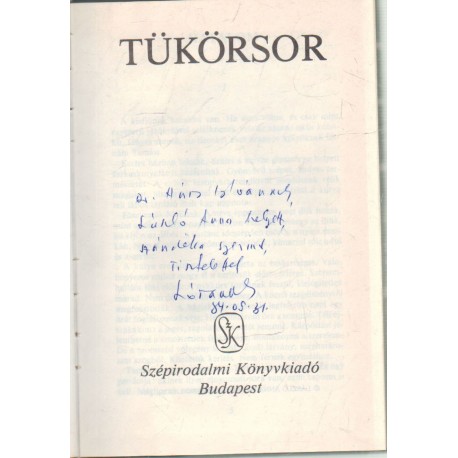 TÜKÖRSOR
Dr. Hárs Istvánnak,
László Anna helyett,
szándéka szerint,
tisztelettel
84.05.31.
SzK
Szépirodalmi Könyvkiadó
Budapest